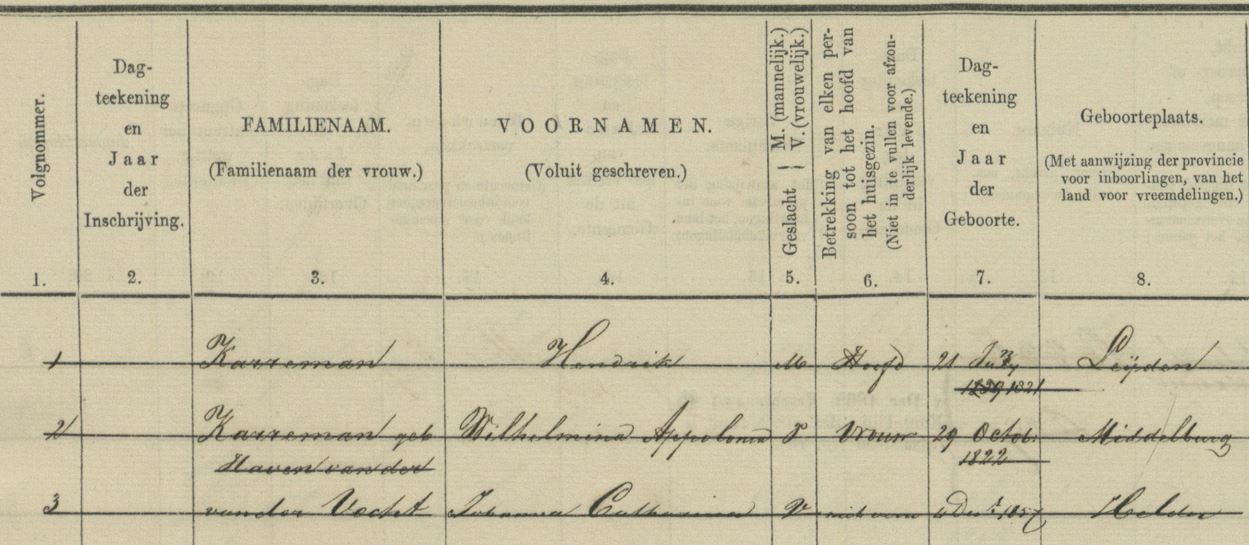 Volgnommer.
1.
Dag-
teekening
en
Jaar
der
Inschrijving.
2.
FAMILIENAAM.
(Familienaam der vrouw.)
3.
VOORNAMEN.
(Voluit geschreven.)
4.
Geslacht { M. (mannelijk.)
V. (vrouwelijk.)
5.
Betrekking van elken per-
soon tot het hoofd van
het huisgezin.
(Niet in te vullen voor afzon-
derlijk levende.)
6.
Dag-
teekening
en
Jaar
der
Geboorte.
7.
Geboorteplaats.
(Met aanwijzing der provincie
voor inboorlingen, van het
land voor vreemdelingen.)
8.
1 Karreman Hendrik M Hoofd 21 July Leijden
1821
2 Karreman geb Wilhelmina Appolonia V Vrouw 29 Octob. Middelburg
Haven van der 1822
3 van der Vocht Johanna Catharina V 1857 Helder